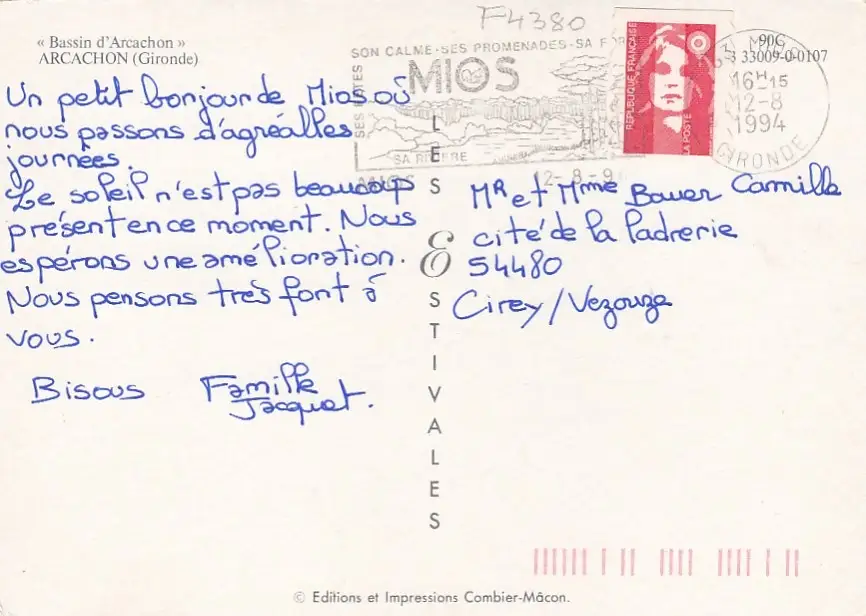 F4380
« Bassin d'Arcachon »
ARCACHON (Gironde)
SON CALME-SES PROMENADES-SA FOR
SES FÊTES
MIOS
SA RIVIERE
MIOS
12-8-9
REPUBLIQUE FRANÇAISE
LA POSTE
90G
3 33009-0-0107
33 MIOS
16H15
12-8
1994
GIRONDE
Un petit bonjour de Mios où
nous passons d'agréalles
journées.
Le soleil n'est pas beaucoup
présent en ce moment. Nous
espérons une amélioration.
Nous pensons très font à
vous.
Bisous Famille
Jacquet.
LES ESTIVALES
MR et Mme Bauer Camille
cité de la ladrerie
54480
Cirey/Vezouze
© Editions et Impressions Combier-Mâcon.